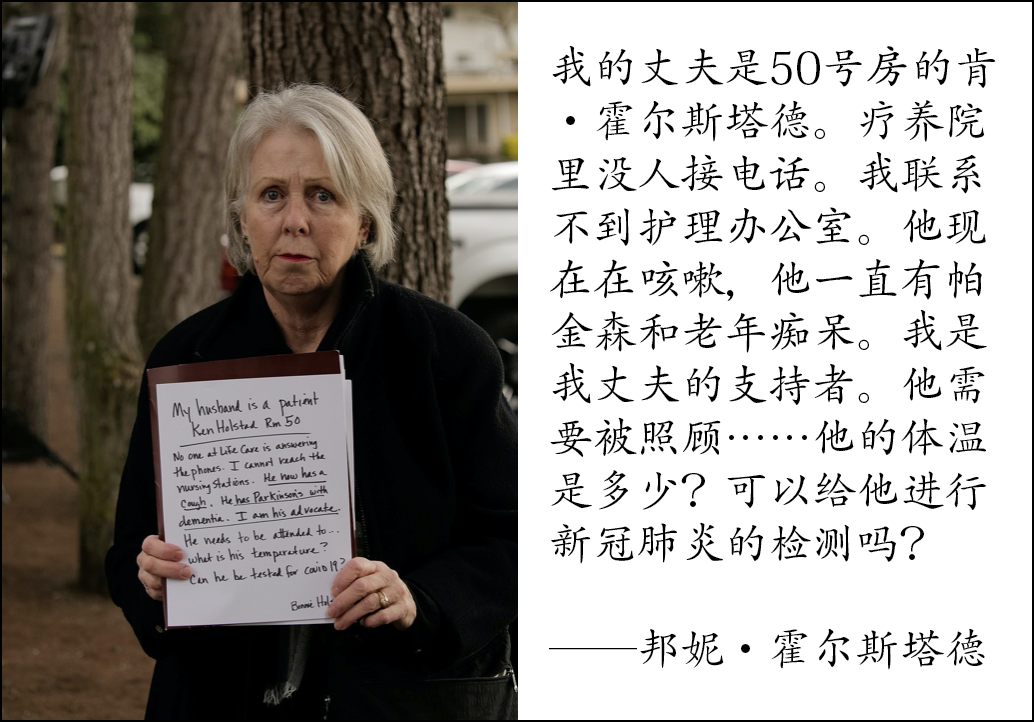 My husband is a patient
Ken Holstad Rm 50
No one at Life Care is answering
the phones. I cannot reach the
nursing stations. He now has a
cough. He has Parkinson's with
dementia. I am his advocate.
He needs to be attended to...
what is his temperature?
Can he be tested for covid 19?
Bonnie Hol
我的丈夫是50号房的肯
·霍尔斯塔德。疗养院
里没人接电话。我联系
不到护理办公室。他现
在在咳嗽，他一直有帕
金森和老年痴呆。我是
我丈夫的支持者。他需
要被照顾……他的体温
是多少？可以给他进行
新冠肺炎的检测吗？
——邦妮·霍尔斯塔德